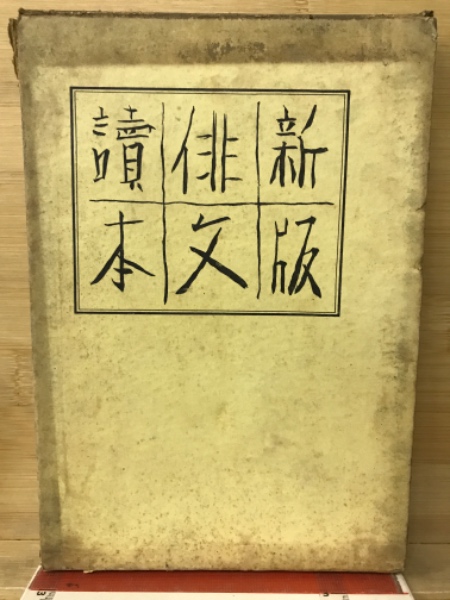 新版
俳文
讀本